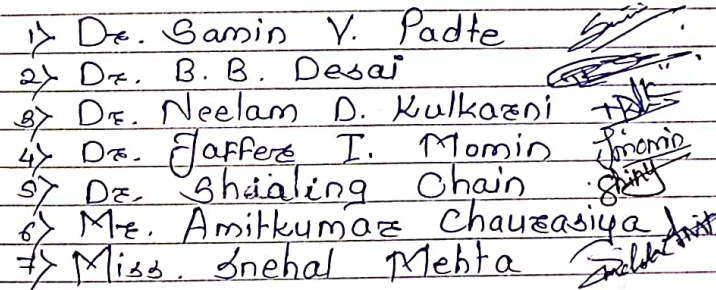 1) Dr. Samin V. Padte
2) Dr. B. B. Desai
3) Dr. Neelam D. Kulkarni
4) Dr. Jaffer I. Momin Jmomin
5) Dr. Shialing Chain
6) Mr. Amitkumar Chaurasiya
7) Miss. Snehal Mehta